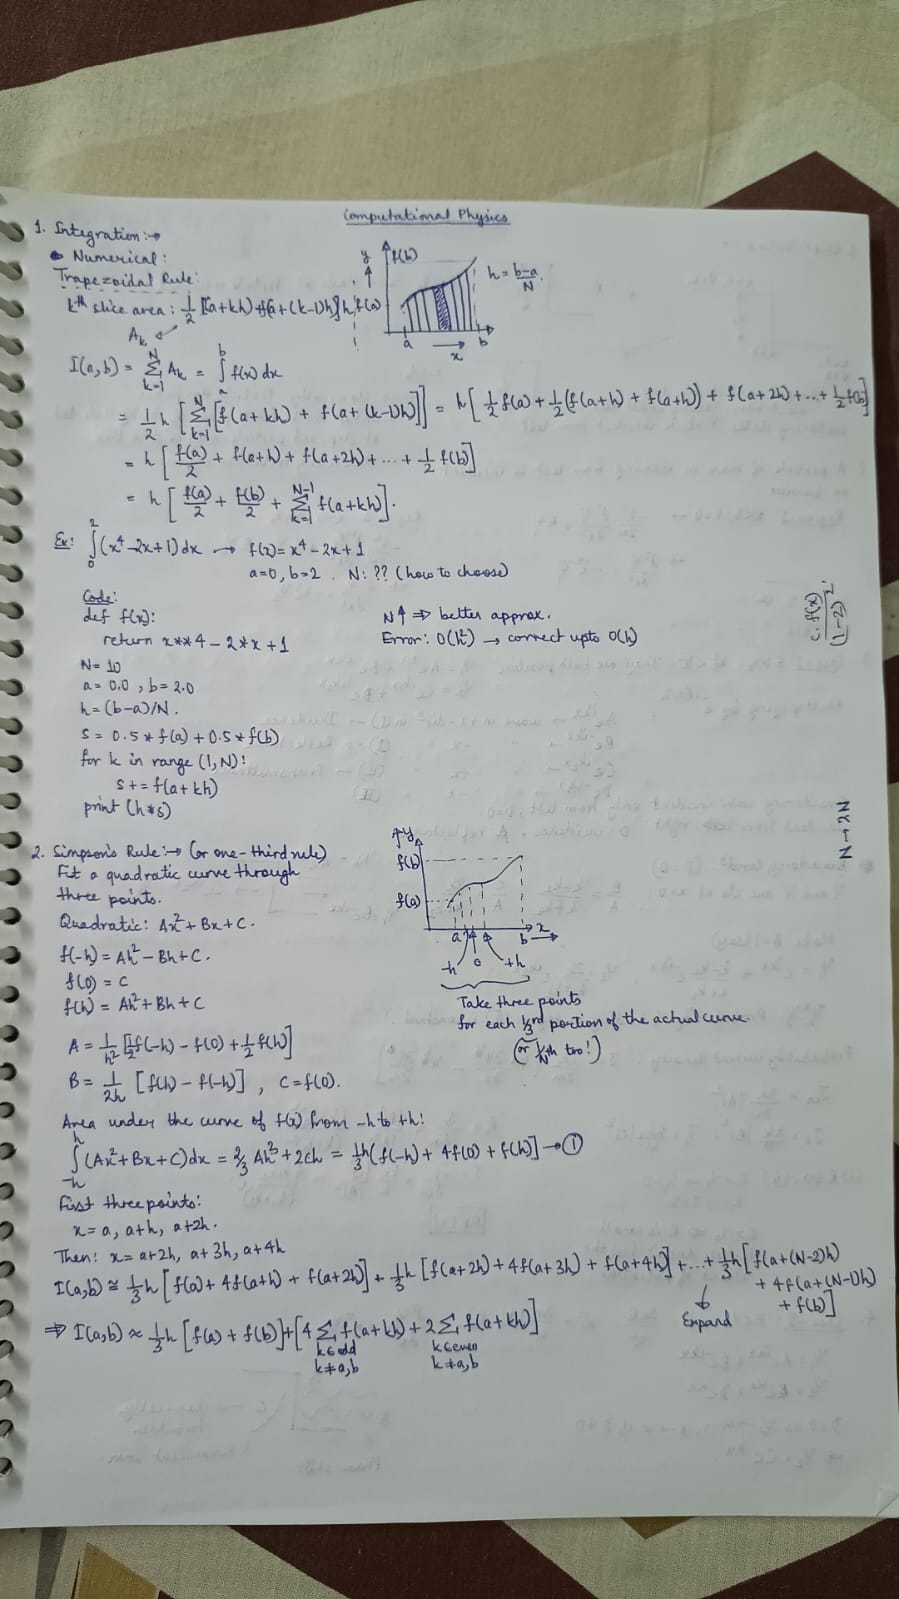 Computational Physics
1. Integration :→
● Numerical :
Trapezoidal Rule:
kth slice area : 1/2 [f(a+kh)+f(a+(k-1)h]h
Ak
y
f(b)
f(a)
h = (b-a)/N
a
x
b
I(a,b) = Σ_{k=1}^{N} Ak = ∫_a^b f(x) dx
= 1/2 h [Σ_{k=1}^{N} [f(a+kh) + f(a+(k-1)h]] = h[1/2 f(a) + 1/2(f(a+h) + f(a+h)) + f(a+2h)+...+1/2 f(b)]
= h [f(a)/2 + f(a+h) + f(a+2h) + ... + 1/2 f(b)]
= h [f(a)/2 + f(b)/2 + Σ_{k=1}^{N-1} f(a+kh)].
Ex: ∫_0^2 (x⁴-2x+1) dx → f(x) = x⁴-2x+1
a=0, b=2. N: ?? (how to choose)
Code:
def f(x):
return x**4 - 2*x +1
N= 10
a= 0.0 , b= 2.0
h = (b-a)/N.
s = 0.5 * f(a) + 0.5 * f(b)
for k in range (1,N):
s += f(a+kh)
print (h*s)
N↑ ⇒ better approx.
Error: O(h²) → correct upto O(h)
c. f(x)/(1-z)²
N→2N
2. Simpson's Rule :→ (or one-third rule)
Fit a quadratic curve through
three points.
Quadratic: Ax²+Bx+C.
f(-h) = Ah²-Bh+C.
f(0) = C
f(h) = Ah²+Bh+C
y
f(b)
f(a)
a
b
x
-h
0
+h
Take three points
for each 1/3rd portion of the actual curve.
(or 1/Nth too!)
A = 1/h² [1/2 f(-h) - f(0) + 1/2 f(h)]
B = 1/2h [f(h) - f(-h)] , C=f(0).
Area under the curve of f(x) from -h to +h:
∫_{-h}^{h} (Ax²+Bx+C)dx = 2/3 Ah³+2Ch = 1/3 h(f(-h) + 4f(0) + f(h)] → ①
First three points:
x = a, a+h, a+2h.
Then: x = a+2h, a+3h, a+4h
I(a,b) ≅ 1/3 h [f(a) + 4f(a+h) + f(a+2h)] + 1/3 h [f(a+2h) + 4f(a+3h) + f(a+4h)] +...+ 1/3 h [f(a+(N-2)h)
+ 4f(a+(N-1)h)
+ f(b)]
Expand
⇒ I(a,b) ≈ 1/3 h [f(a) + f(b)]+[4 Σ f(a+kh) + 2 Σ f(a+kh)]
k∈odd
k≠a,b
k∈even
k≠a,b